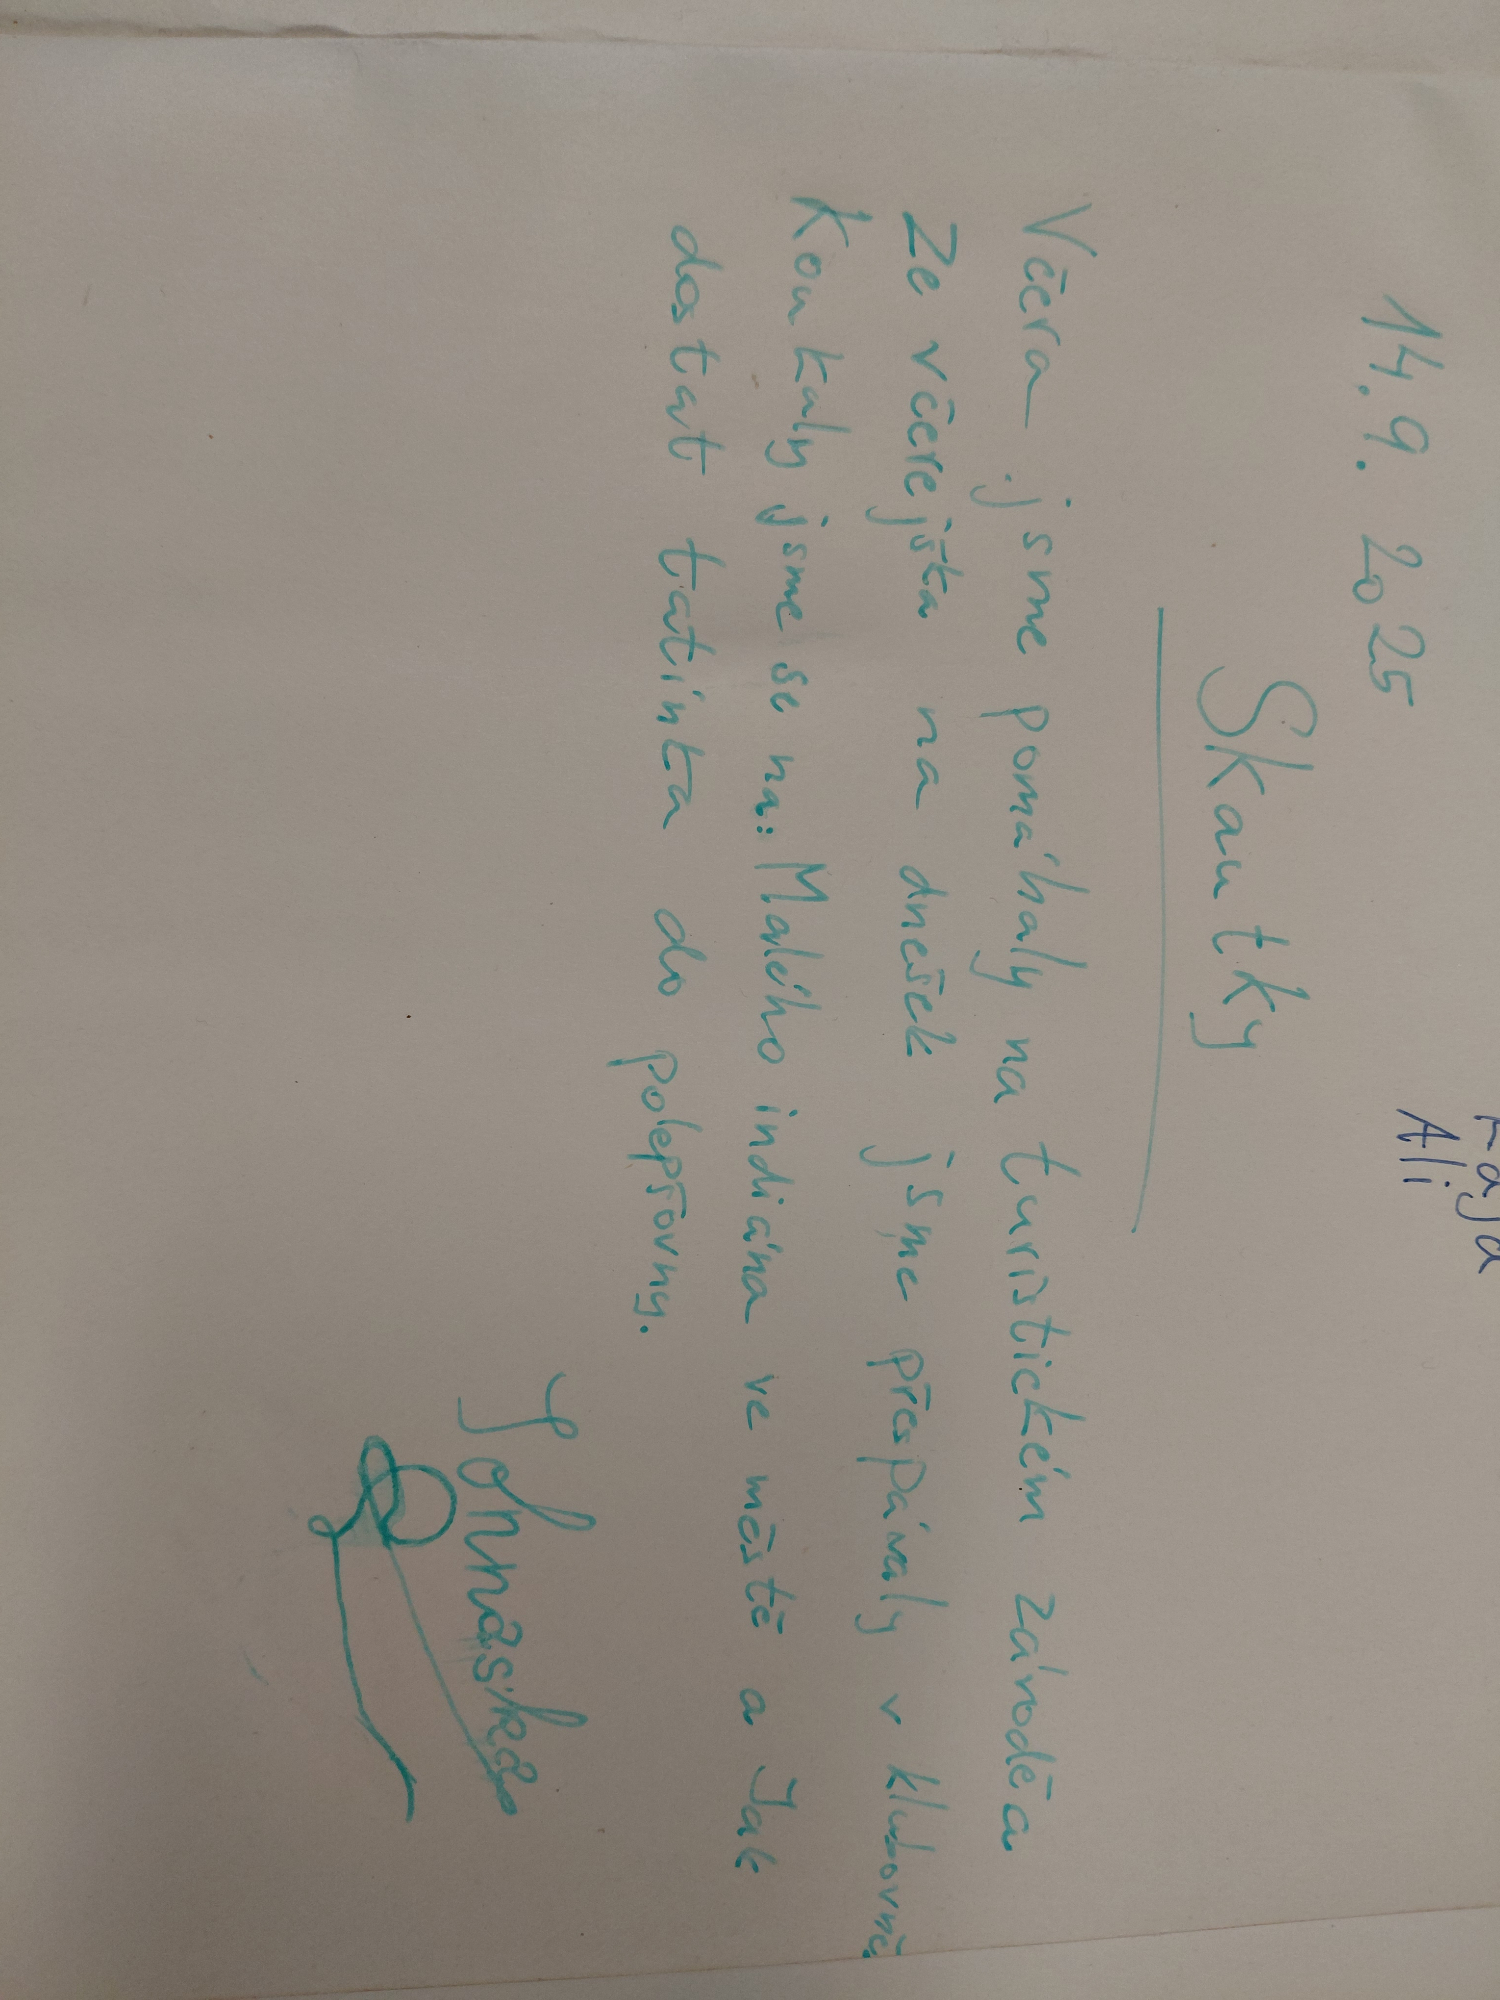 Ali
14.9. 2025
Skautky
Včera jsme pomáhaly na turistickém závodě a
Ze včerejška na dnešek jsme přespávaly v klubovně
Koukaly jsme se na: Malého indiána ve městě a Jak
dostat tatínka do polepšovny.